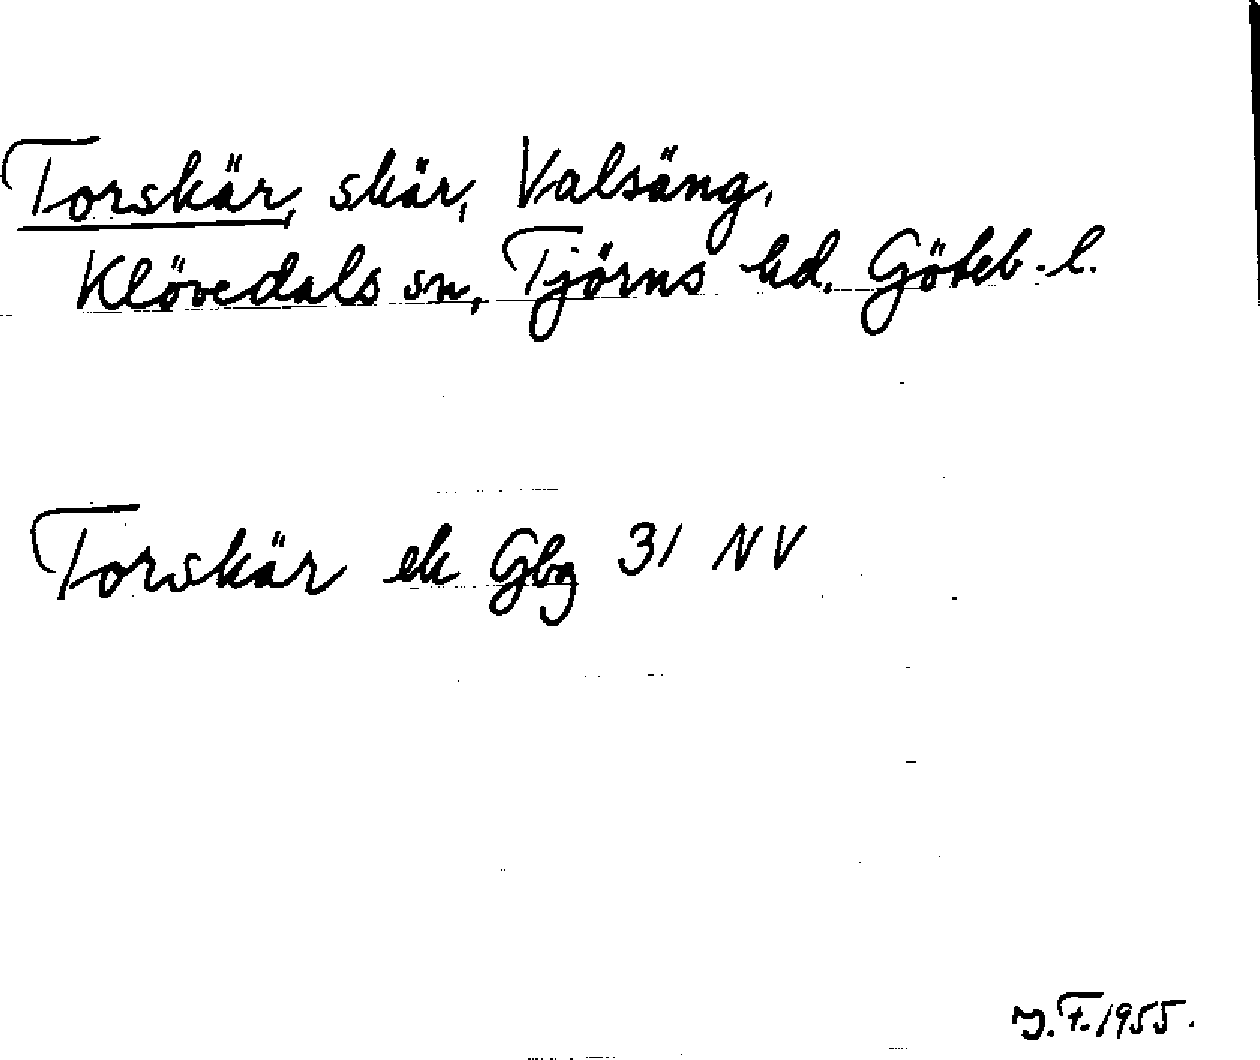 Torskär, skär, Valsäng,
Klövedals sn, Tjörns hd. Göteb. l.
Torskär ek Gbg 31 NV
J.F. 1955.